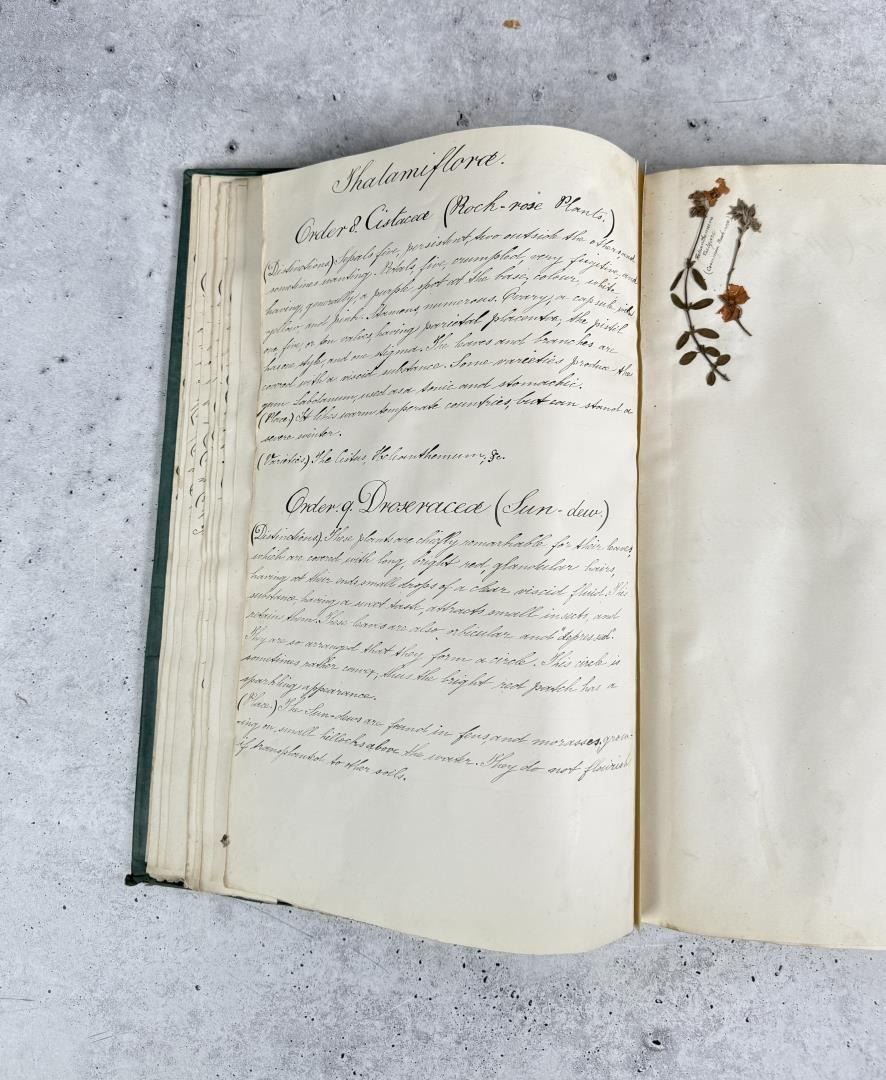 Thalamifloræ.
Order 8. Cistaceæ (Rock-rose Plants.)
(Distinctions) Sepals five, persistent, two outside the others, and
sometimes wanting. Petals, five, crumpled, very fugitive, and
having, generally, a purple spot at the base; colour, white
yellow, and pink. Stamens, numerous. Ovary, a capsule, with
one, five, or ten valves, having parietal placentæ; the pistil
has one style, and one stigma. The leaves and branches are
covered with a viscid substance. Some varieties produce the
gum Labdanum, used as a tonic and stomachic.
(Place) It likes warm temperate countries, but can stand a
severe winter.
(Varieties) The Cistus, Helianthemum, &c.
Order. 9. Droseraceæ (Sun-dew)
(Distinctions) These plants are chiefly remarkable for their leaves,
which are covered with long, bright red, glandular hairs,
having at their ends small drops of a clear viscid fluid. This
substance, having a sweet taste, attracts small insects, and
retains them. These leaves are also orbicular and "depressed.
They are so arranged that they form a circle. This circle is
sometimes rather convex, thus the bright red patch has a
sparkling appearance.
(Place.) The Sun-dews are found in fens, and morasses, grow-
ing on, small hillocks above the water. They do not flourish
if transplanted to other soils.
Helianthemum
Vulgare
(Common Rock-rose)